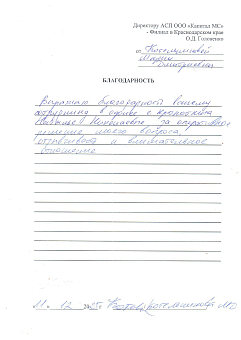 Директору АСП ООО «Капитал МС»
- Филиал в Краснодарском крае
О.Д. Головченко
от Костелниковой
Марии
Дмитриевны
БЛАГОДАРНОСТЬ
Выражаю благодарность вашему
сотруднику в офисе г. Кропоткина
Наталье Николаевне за оперативное
решение моего вопроса
отзывчивость и внимательное
отношение
11. 12 2025г